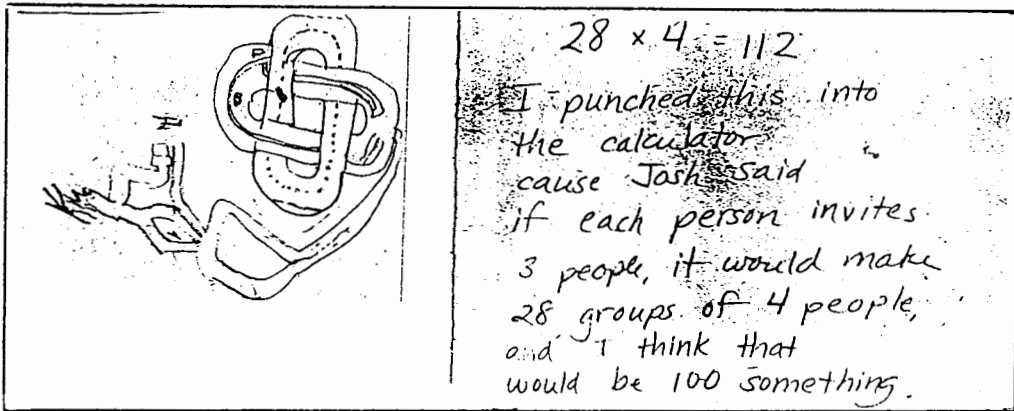 28 × 4 = 112
I punched this into
the calculator
cause Josh said
if each person invites
3 people, it would make
28 groups of 4 people,
and I think that
would be 100 something.